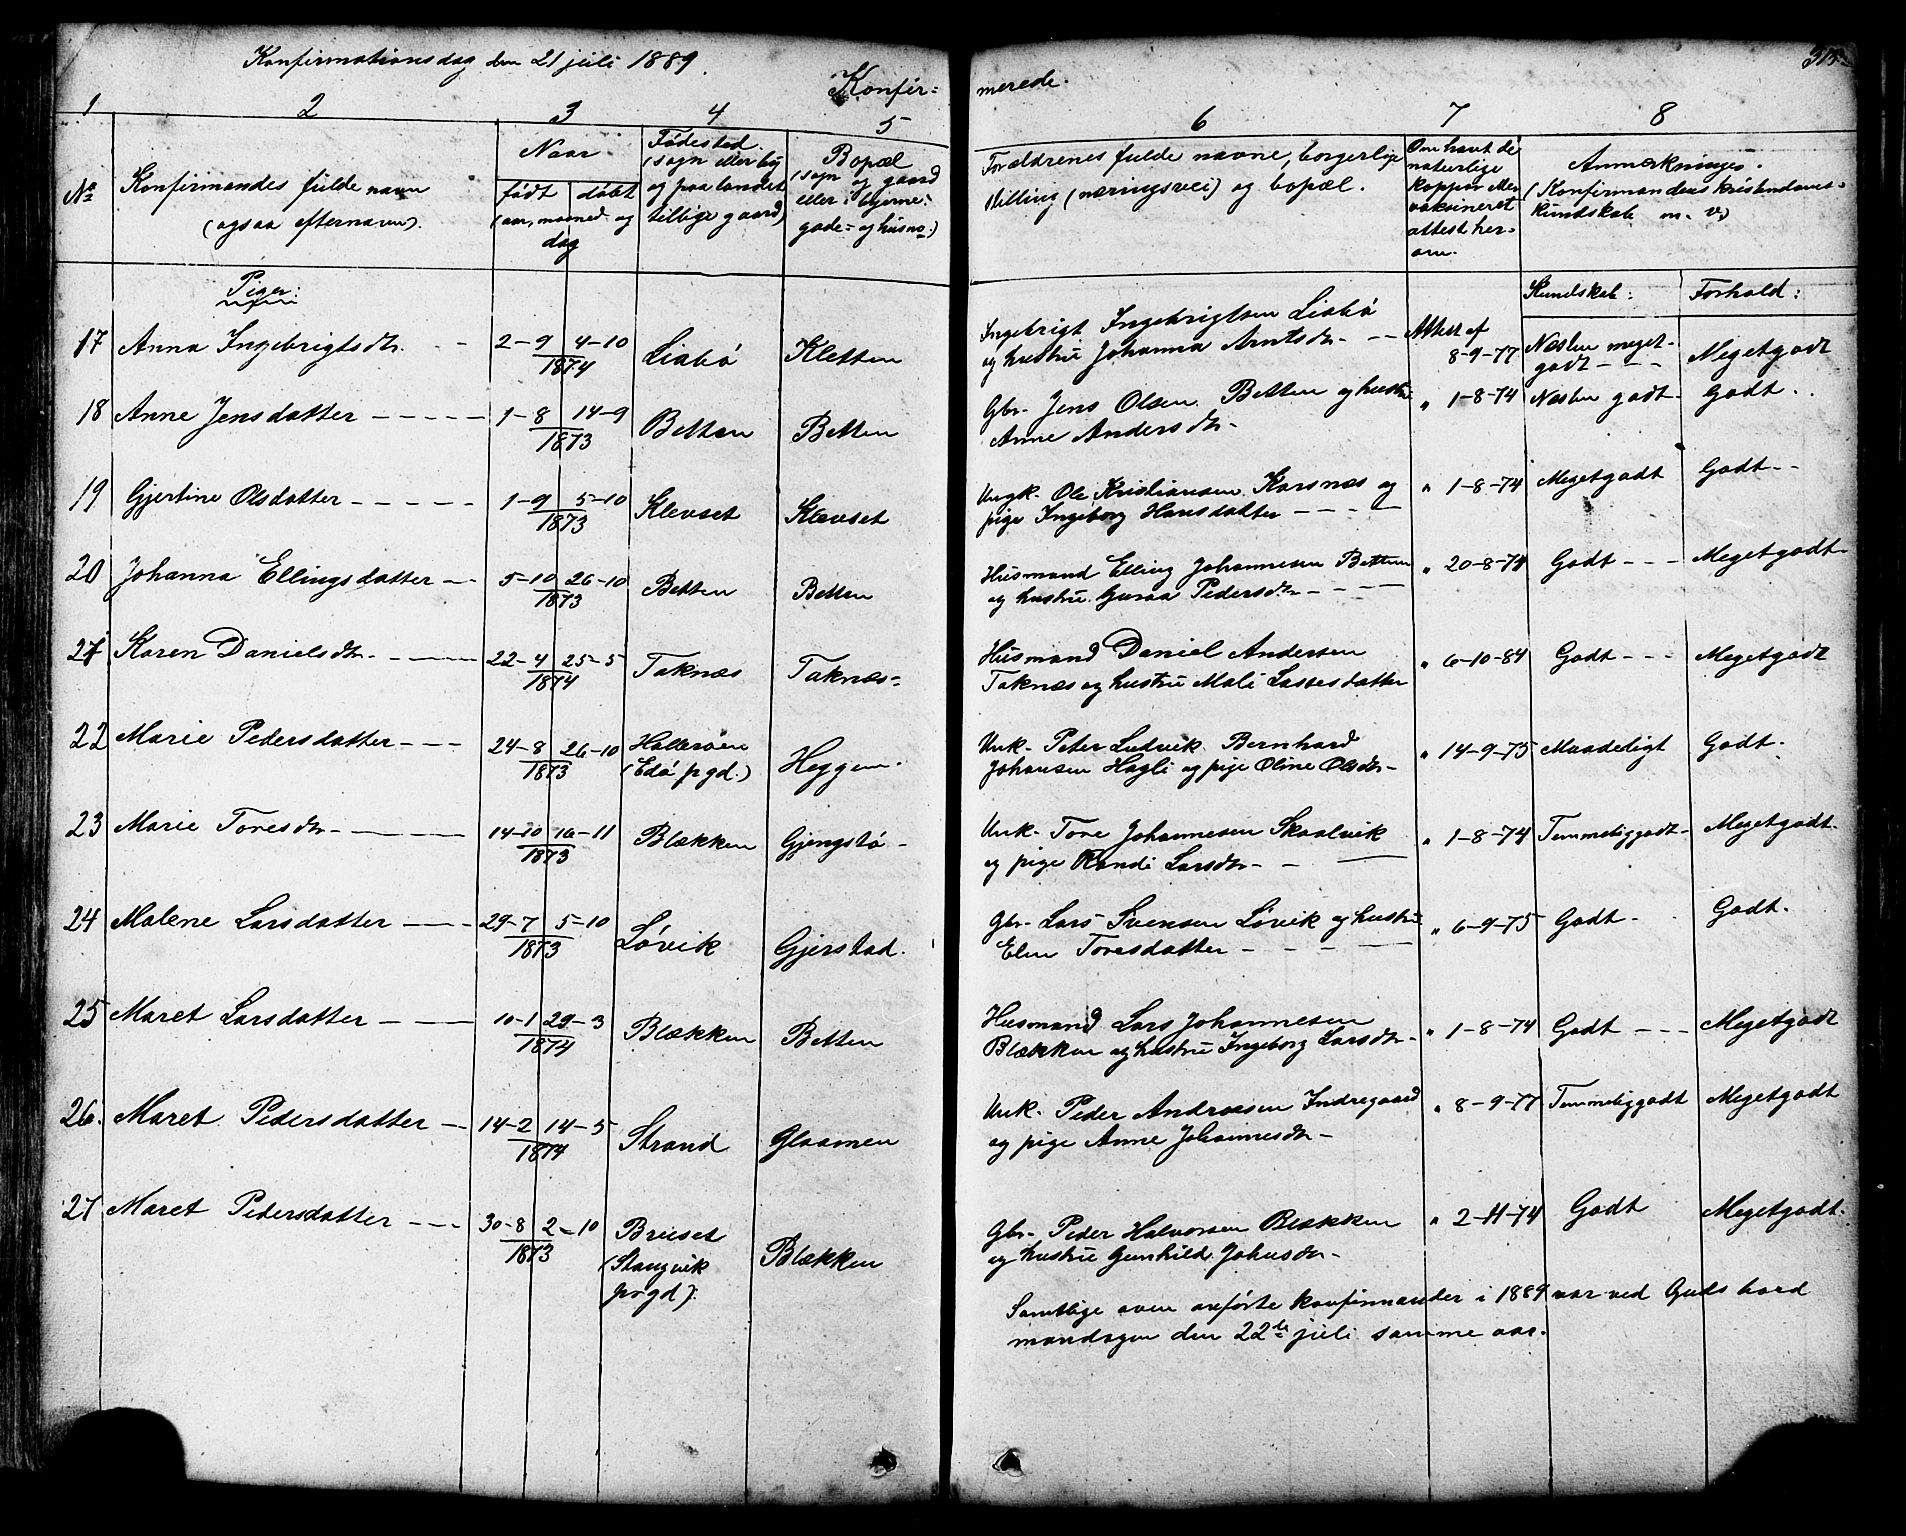 Konfirmationsdag den 21 juli 1889.
Konfir= merede.
1 2 3 4 5 6 7 8
No
Konfirmandes fulde navn
(ogsaa efternavn).
Naar
født døbt
(aar, maaned og
dag
Fødested.
(sogn eller by
og paa landet
tillige gaard)
Bopæl
(sogn og gaard
eller i byerne:
gade= og husno.)
Forældrenes fulde navne, borgerlige
stilling (næringsvei) og bopæl.
Om havt de
naturlige
kopper eller
vaksineret
attest her=
om.
Anmærkninger.
(Konfirmandens kristendoms=
kundskab m. v.)
Kundskab: Forhold:
Piger:
17 Anna Ingebrigtsdtr. 2-9 4-10 1874 Liabø Kletten Ingebrigt Ingebrigtsen Liabø
og hustru Johanna Arntsdtr- Attest af
8-9-77 Næsten meget
godt Megetgodt
18 Anne Jensdatter 1-8 14-9 1873 Betten Betten Gbr. Jens Olsen Betten og hustru
Anne Andersdtr- " 1-8-74 Næsten godt Godt.
19 Gjertine Olsdatter 1-9 5-10 1873 Klevset Klevset Ungk. Ole Kristiansen Korsnes og
pige Ingeborg Hansdatter " 1-8-74 Megetgodt Godt
20 Johanna Ellingsdatter 5-10 26-10 1873 Betten Betten Husmand Elling Johannesen Betten
og hustru Guraa Pedersdtr " 20-8-74 Godt Megetgodt
21 Karen Danielsdtr. 22-4 25-5 1874 Taknæs Taknæs= Husmand Daniel Andersen
Taknæs og hustru Mali Lassesdatter " 6-10-84 Godt Megetgodt
22 Marie Pedersdatter 24-8 26-10 1873 Hallarøen
(Edø pgd.) Heggem. Unk. Peter Ludvik Bernhard
Johansen Hagli og pige Oline Olsdtr- " 14-9-75 Maadeligt Godt.
23 Marie Toresdtr 14-10 16-11 1873 Blækken Gjengstø Unk. Tore Johannesen Skaalvik
og pige Randi Larsdtr " 1-8-74 Temmeliggodt Megetgodt.
24 Malene Larsdatter 29-7 5-10 1873 Løvik Gjerstad. Gbr. Lars Svensen Løvik og hustru
Elen Toresdatter " 6-9-75 Godt Godt.
25 Maret Larsdatter 10-1 29-3 1874 Blækken Betten Husmand Lars Johannesen
Blækken og hustru Ingeborg Larsdtr " 1-8-74 Godt Megetgodt
26. Maret Pedersdatter 14-2 14-5 1874 Strand Glaamen Unk. Peder Andreesen Indregaard
og pige Anne Johannesdtr " 8-9-77 Temmeliggodt Megetgodt
27 Maret Pedersdatter 30-8 2-10 1873 Bruset
(Stangvik
prgd). Blækken Gbr. Peder Halvorsen Blækken
og hustru Gunhild Johnsdtr- " 2-11-74 Godt Megetgodt.
Samtlige oven anførte konfirmander i 1889 var ved Guds bord
mandagen den 22de juli samme aar.